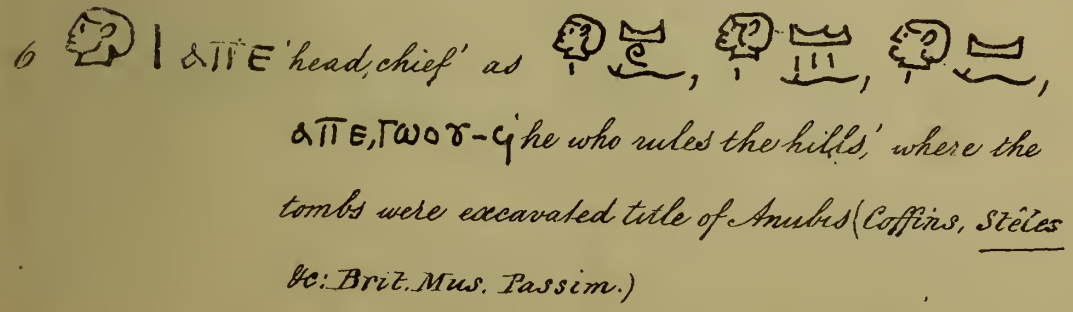 6 𓁶𓏤 ⲁⲡⲉ 'head, chief' as 𓁶𓏤𓈋𓏲𓆑, 𓁶𓏤𓈋𓏥𓆑, 𓁶𓏤𓈋𓆑,
ⲁⲡⲉ,ⲧⲱⲟⲩ-ϥ 'he who rules the hills,' where the
tombs were excavated title of Anubis (Coffins, Stêles
&c: Brit. Mus. Passim.)